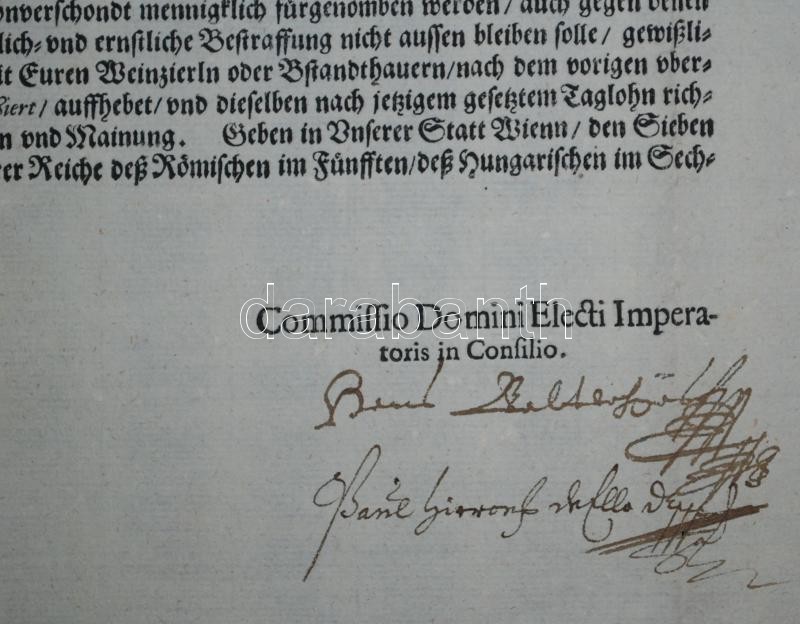 onverschondt mennigklich fürgenomben werden / auch gegen denen
lich= vnd ernstliche Bestraffung nicht aussen bleiben solle / gewißli=
it Euren Weinzierln oder Bstandthauern / nach dem vorigen vber=
siert / auffhebet / vnd dieselben nach jetzigem gesetztem Taglohn rich=
n vnd Mainung. Geben in Vnserer Statt Wienn / den Sieben
rer Reiche deß Römischen im Fünfften / deß Hungarischen im Sech=
darabanth
Commissio Domini Electi Impera-
toris in Consilio.
Paul